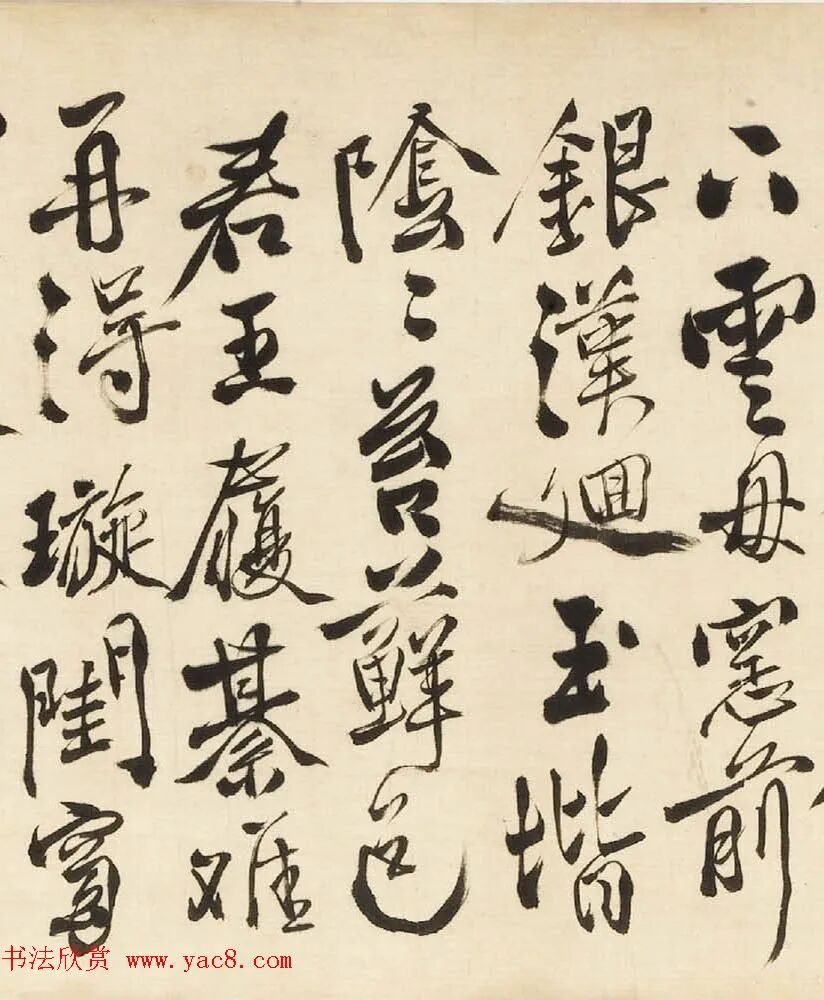 下雲母窓前
銀漢迴玉堦
陰々苔蘚色
君王履綦難
再得璇閨窈
书法欣赏 www.yac8.com